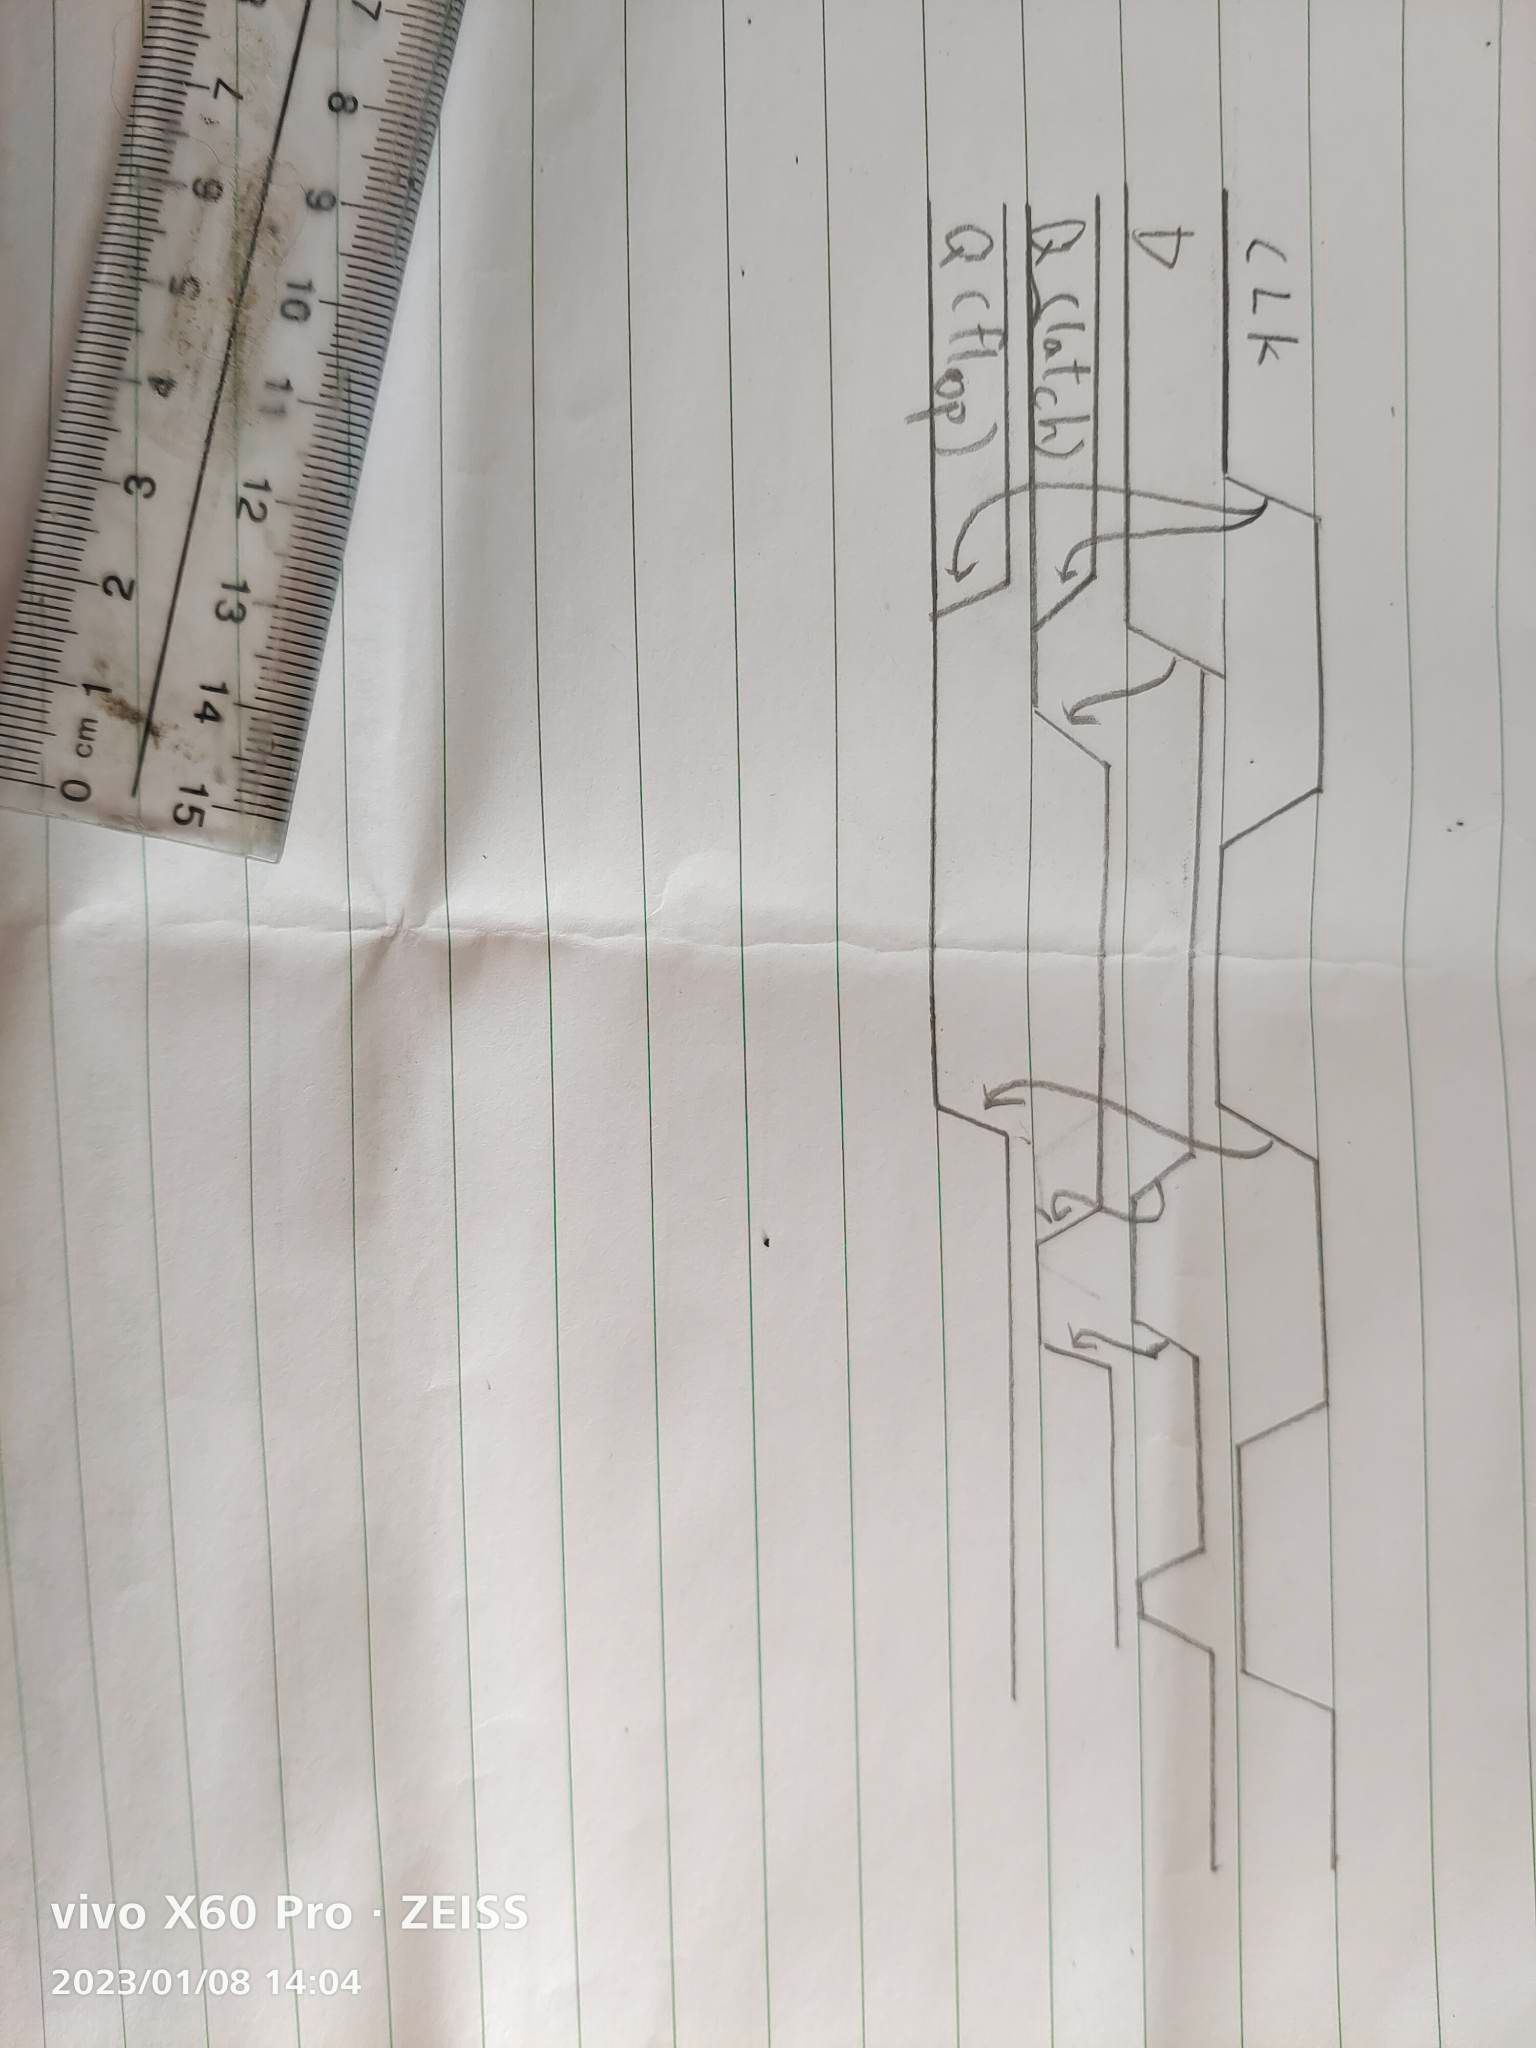 CLK
D
Q (latch)
Q (flop)
7 8 9 10 11 12 13 14 15
7 6 5 4 3 2 1 0 cm
vivo X60 Pro · ZEISS
2023/01/08 14:04